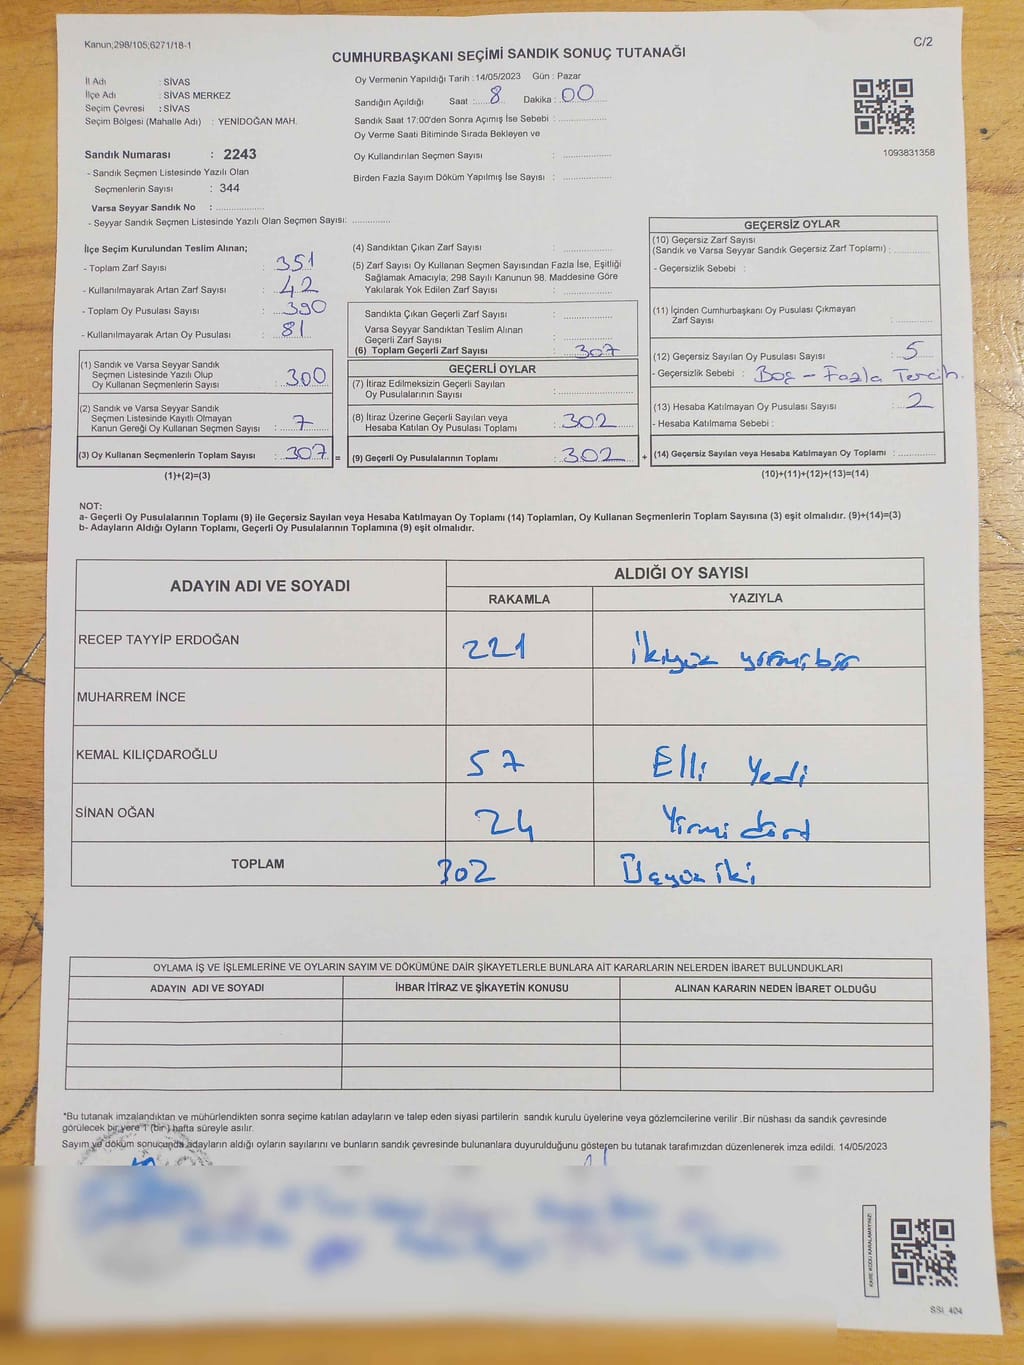 Kanun;298/105;6271/18-1
C/2
CUMHURBAŞKANI SEÇİMİ SANDIK SONUÇ TUTANAĞI
İl Adı : SİVAS
İlçe Adı : SİVAS MERKEZ
Seçim Çevresi : SİVAS
Seçim Bölgesi (Mahalle Adı) : YENİDOĞAN MAH.
Sandık Numarası : 2243
- Sandık Seçmen Listesinde Yazılı Olan
Seçmenlerin Sayısı : 344
Varsa Seyyar Sandık No : ..................
- Seyyar Sandık Seçmen Listesinde Yazılı Olan Seçmen Sayısı: ..............
Oy Vermenin Yapıldığı Tarih : 14/05/2023 Gün : Pazar
Sandığın Açıldığı Saat : 8 Dakika : 00
Sandık Saat 17:00'den Sonra Açımış İse Sebebi : ..................
Oy Verme Saati Bitiminde Sırada Bekleyen ve
Oy Kullandırılan Seçmen Sayısı : ..................
Birden Fazla Sayım Döküm Yapılmış İse Sayısı : ..................
1093831358
İlçe Seçim Kurulundan Teslim Alınan;
- Toplam Zarf Sayısı : 351
- Kullanılmayarak Artan Zarf Sayısı : 42
- Toplam Oy Pusulası Sayısı : 390
- Kullanılmayarak Artan Oy Pusulası : 81
(1) Sandık ve Varsa Seyyar Sandık
Seçmen Listesinde Yazılı Olup
Oy Kullanan Seçmenlerin Sayısı : 300
(2) Sandık ve Varsa Seyyar Sandık
Seçmen Listesinde Kayıtlı Olmayan
Kanun Gereği Oy Kullanan Seçmen Sayısı : 7
(3) Oy Kullanan Seçmenlerin Toplam Sayısı : 307 =
(1)+(2)=(3)
(4) Sandıktan Çıkan Zarf Sayısı : ..................
(5) Zarf Sayısı Oy Kullanan Seçmen Sayısından Fazla İse, Eşitliği
Sağlamak Amacıyla; 298 Sayılı Kanunun 98. Maddesine Göre
Yakılarak Yok Edilen Zarf Sayısı : ..................
Sandıkta Çıkan Geçerli Zarf Sayısı : ..................
Varsa Seyyar Sandıktan Teslim Alınan
Geçerli Zarf Sayısı : ..................
(6) Toplam Geçerli Zarf Sayısı : 307
GEÇERLİ OYLAR
(7) İtiraz Edilmeksizin Geçerli Sayılan
Oy Pusulasının Sayısı : ..................
(8) İtiraz Üzerine Geçerli Sayılan veya
Hesaba Katılan Oy Pusulası Toplamı : 302
(9) Geçerli Oy Pusulalarının Toplamı : 302 +
GEÇERSİZ OYLAR
(10) Geçersiz Zarf Sayısı
(Sandık ve Varsa Seyyar Sandık Geçersiz Zarf Toplamı) : ..............
- Geçersizlik Sebebi :
(11) İçinden Cumhurbaşkanı Oy Pusulası Çıkmayan
Zarf Sayısı : ..............
(12) Geçersiz Sayılan Oy Pusulası Sayısı : 5
- Geçersizlik Sebebi : Boş - Fazla Tercih.
(13) Hesaba Katılmayan Oy Pusulası Sayısı : 2
- Hesaba Katılmama Sebebi :
(14) Geçersiz Sayılan veya Hesaba Katılmayan Oy Toplamı : ..............
(10)+(11)+(12)+(13)=(14)
NOT:
a- Geçerli Oy Pusulalarının Toplamı (9) ile Geçersiz Sayılan veya Hesaba Katılmayan Oy Toplamı (14) Toplamları, Oy Kullanan Seçmenlerin Toplam Sayısına (3) eşit olmalıdır. (9)+(14)=(3)
b- Adayların Aldığı Oyların Toplamı, Geçerli Oy Pusulalarının Toplamına (9) eşit olmalıdır.
ADAYIN ADI VE SOYADI
ALDIĞI OY SAYISI
RAKAMLA YAZIYLA
RECEP TAYYİP ERDOĞAN 221 İkiyüz yirmibir
MUHARREM İNCE
KEMAL KILIÇDAROĞLU 57 Elli Yedi
SİNAN OĞAN 24 Yirmi dört
TOPLAM 302 Üçyüz iki
OYLAMA İŞ VE İŞLEMLERİNE VE OYLARIN SAYIM VE DÖKÜMÜNE DAİR ŞİKAYETLERLE BUNLARA AİT KARARLARIN NELERDEN İBARET BULUNDUKLARI
ADAYIN ADI VE SOYADI İHBAR İTİRAZ VE ŞİKAYETİN KONUSU ALINAN KARARIN NEDEN İBARET OLDUĞU
*Bu tutanak imzalandıktan ve mühürlendikten sonra seçime katılan adayların ve talep eden siyasi partilerin sandık kurulu üyelerine veya gözlemcilerine verilir .Bir nüshası da sandık çevresinde
görülecek bir yere 1 (bir) hafta süreyle asılır.
Sayım ve döküm sonucunda adayların aldığı oyların sayılarını ve bunların sandık çevresinde bulunanlara duyurulduğunu gösteren bu tutanak tarafımızdan düzenlenerek imza edildi. 14/05/2023
KARE KODU KARALAMAYINIZ!
SSİ_404